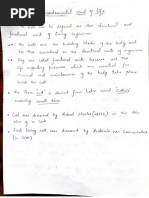 Fundamental Unit of life
The cell can be defined as the structural and
functional unit of living organism
The cells are the building blocks of the body and
are considered as the structural units of organism
They are called functional units because all the
life regarding processes which are essential for the
survival and maintenance of the body takes place
inside the cell
The term cell is derived from latin word cellula
meaning small room
Cell was discovered by Robert Hooke (1665) in the thin
slice of a cork
First living cell was discovered by
(in 1674)